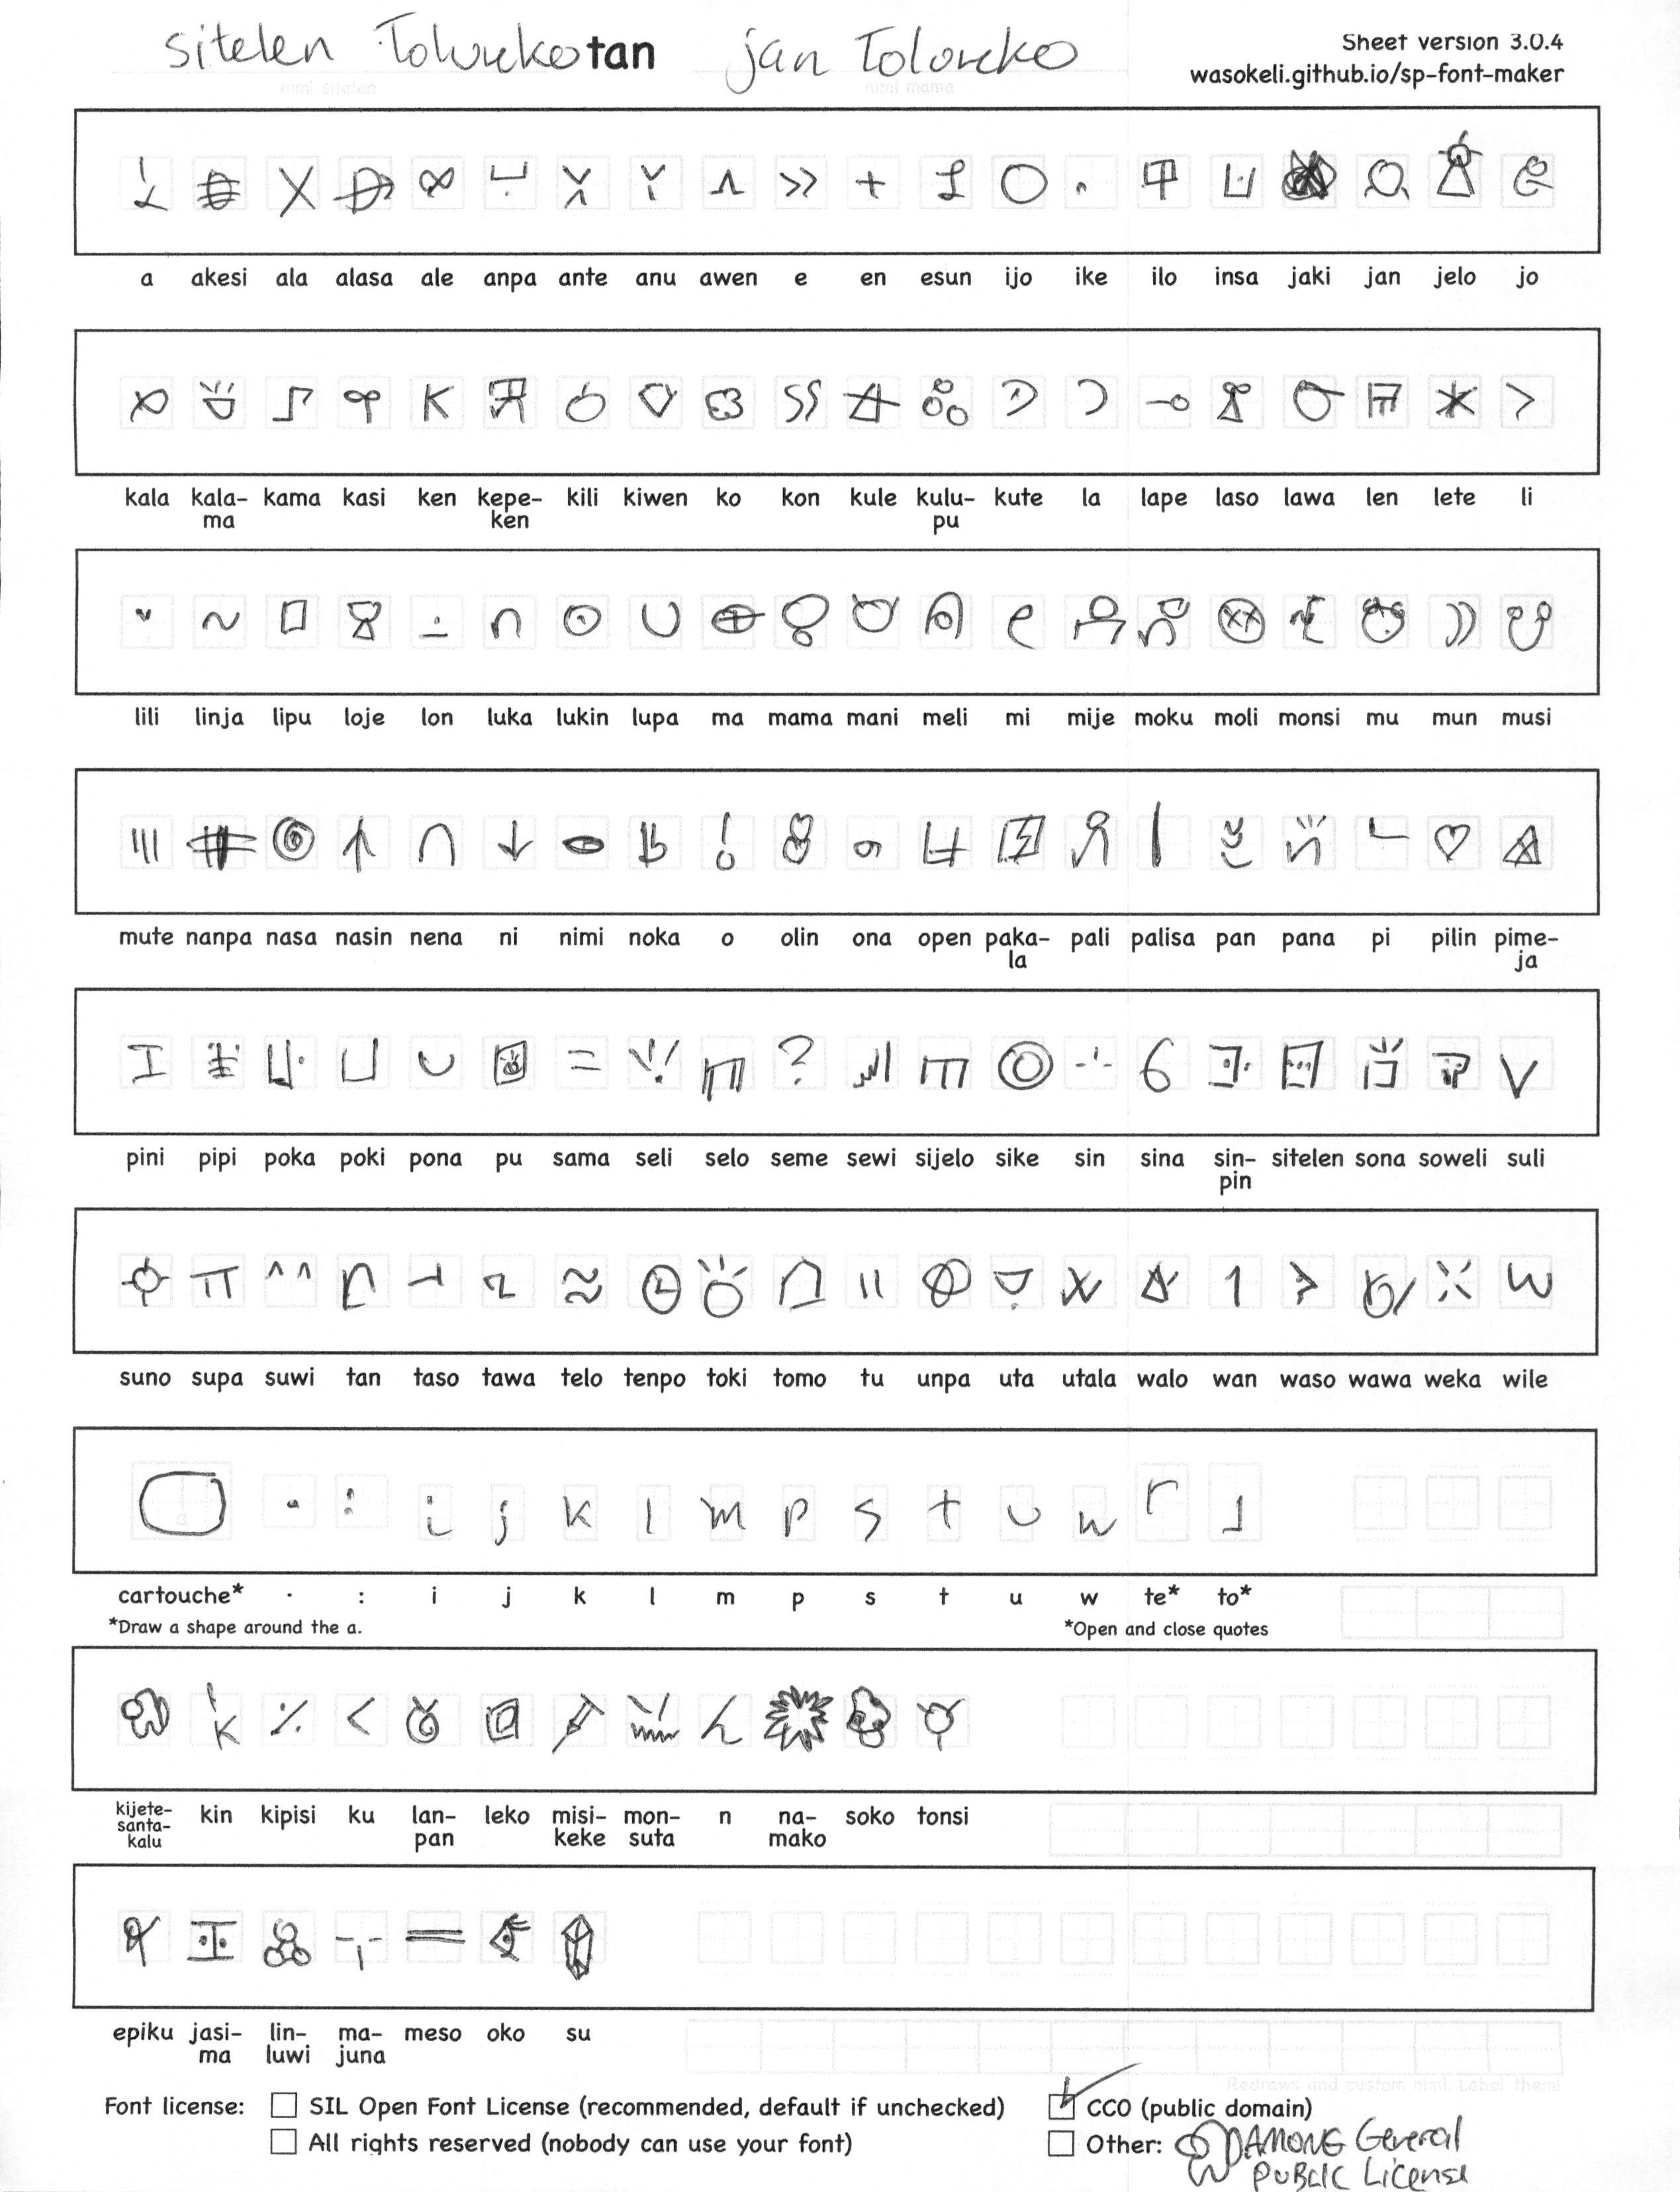 sitelen Tolouekotan jan Toloueko
Sheet version 3.0.4
wasokeli.github.io/sp-font-maker
nimi sitelen nimi mama
a akesi ala alasa ale anpa ante anu awen e en esun ijo ike ilo insa jaki jan jelo jo
kala kala-ma kama kasi ken kepe-ken kili kiwen ko kon kule kulu-pu kute la lape laso lawa len lete li
lili linja lipu loje lon luka lukin lupa ma mama mani meli mi mije moku moli monsi mu mun musi
mute nanpa nasa nasin nena ni nimi noka o olin ona open paka-la pali palisa pan pana pi pilin pime-ja
pini pipi poka poki pona pu sama seli selo seme sewi sijelo sike sin sina sin-pin sitelen sona soweli suli
suno supa suwi tan taso tawa telo tenpo toki tomo tu unpa uta utala walo wan waso wawa weka wile
i j k l m p s t u w
cartouche* · : i j k l m p s t u w te* to*
*Draw a shape around the a. *Open and close quotes
kijete-santa-kalu kin kipisi ku lan-pan leko misi-keke mon-suta n na-mako soko tonsi
epiku jasi-ma lin-luwi ma-juna meso oko su
Redraws and custom nimi. Label them!
Font license: SIL Open Font License (recommended, default if unchecked) CC0 (public domain)
All rights reserved (nobody can use your font) Other: AMONG General
PUBLIC License